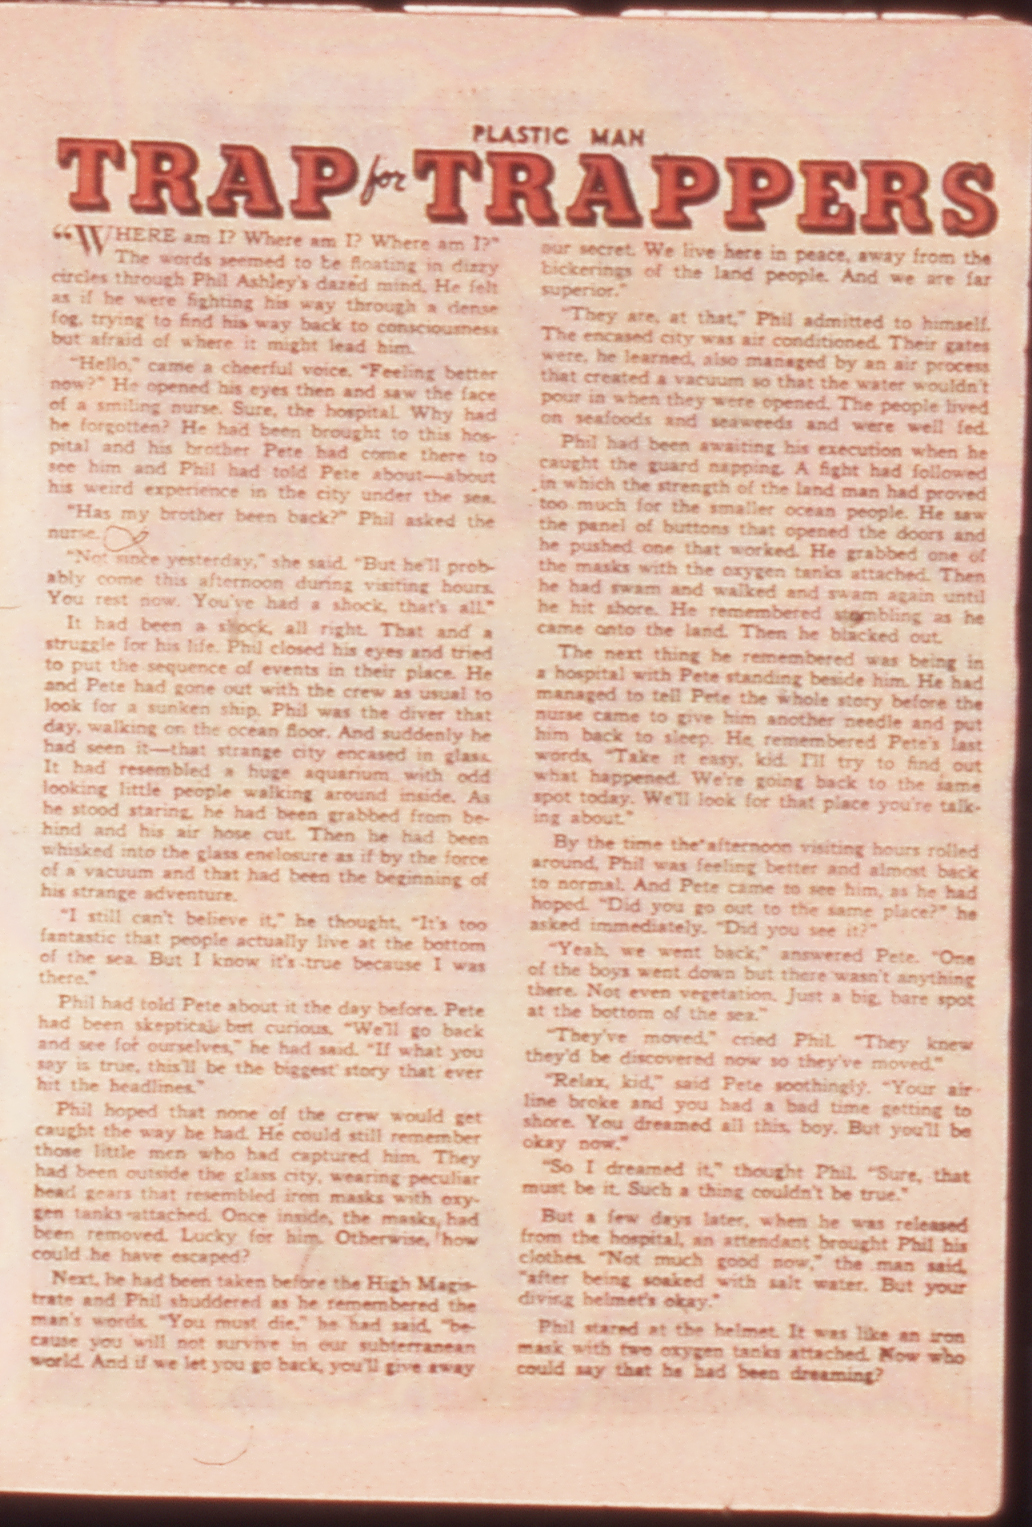 PLASTIC MAN
TRAP for TRAPPERS
"WHERE am I? Where am I? Where am I?"
The words seemed to be floating in dizzy
circles through Phil Ashley's dazed mind. He felt
as if he were fighting his way through a dense
fog, trying to find his way back to consciousness
but afraid of where it might lead him.
"Hello," came a cheerful voice. "Feeling better
now?" He opened his eyes then and saw the face
of a smiling nurse. Sure, the hospital. Why had
he forgotten? He had been brought to this hos-
pital and his brother Pete had come there to
see him and Phil had told Pete about—about
his weird experience in the city under the sea.
"Has my brother been back?" Phil asked the
nurse.
"Not since yesterday," she said. "But he'll prob-
ably come this afternoon during visiting hours.
You rest now. You've had a shock, that's all."
It had been a shock, all right. That and a
struggle for his life. Phil closed his eyes and tried
to put the sequence of events in their place. He
and Pete had gone out with the crew as usual to
look for a sunken ship. Phil was the diver that
day, walking on the ocean floor. And suddenly he
had seen it—that strange city encased in glass.
It had resembled a huge aquarium with odd
looking little people walking around inside. As
he stood staring, he had been grabbed from be-
hind and his air hose cut. Then he had been
whisked into the glass enclosure as if by the force
of a vacuum and that had been the beginning of
his strange adventure.
"I still can't believe it," he thought, "It's too
fantastic that people actually live at the bottom
of the sea. But I know it's true because I was
there."
Phil had told Pete about it the day before. Pete
had been skeptical but curious. "We'll go back
and see for ourselves," he had said. "If what you
say is true, this'll be the biggest story that ever
hit the headlines."
Phil hoped that none of the crew would get
caught the way he had. He could still remember
those little men who had captured him. They
had been outside the glass city, wearing peculiar
head gears that resembled iron masks with oxy-
gen tanks attached. Once inside, the masks had
been removed. Lucky for him. Otherwise, how
could he have escaped?
Next, he had been taken before the High Magis-
trate and Phil shuddered as he remembered the
man's words. "You must die," he had said, "be-
cause you will not survive in our subterranean
world. And if we let you go back, you'll give away
our secret. We live here in peace, away from the
bickerings of the land people. And we are far
superior."
"They are, at that," Phil admitted to himself.
The encased city was air conditioned. Their gates
were, he learned, also managed by an air process
that created a vacuum so that the water wouldn't
pour in when they were opened. The people lived
on seafoods and seaweeds and were well fed.
Phil had been awaiting his execution when he
caught the guard napping. A fight had followed
in which the strength of the land man had proved
too much for the smaller ocean people. He saw
the panel of buttons that opened the doors and
he pushed one that worked. He grabbed one of
the masks with the oxygen tanks attached. Then
he had swam and walked and swam again until
he hit shore. He remembered stumbling as he
came onto the land. Then he blacked out.
The next thing he remembered was being in
a hospital with Pete standing beside him. He had
managed to tell Pete the whole story before the
nurse came to give him another needle and put
him back to sleep. He remembered Pete's last
words, "Take it easy, kid. I'll try to find out
what happened. We're going back to the same
spot today. We'll look for that place you're talk-
ing about."
By the time the afternoon visiting hours rolled
around, Phil was feeling better and almost back
to normal. And Pete came to see him, as he had
hoped. "Did you go out to the same place?" he
asked immediately. "Did you see it?"
"Yeah, we went back," answered Pete. "One
of the boys went down but there wasn't anything
there. Not even vegetation. Just a big, bare spot
at the bottom of the sea."
"They've moved," cried Phil. "They knew
they'd be discovered now so they've moved."
"Relax, kid," said Pete soothingly. "Your air-
line broke and you had a bad time getting to
shore. You dreamed all this, boy. But you'll be
okay now."
"So I dreamed it," thought Phil. "Sure, that
must be it. Such a thing couldn't be true."
But a few days later, when he was released
from the hospital, an attendant brought Phil his
clothes. "Not much good now," the man said,
"after being soaked with salt water. But your
diving helmet's okay."
Phil stared at the helmet. It was like an iron
mask with two oxygen tanks attached. Now who
could say that he had been dreaming?